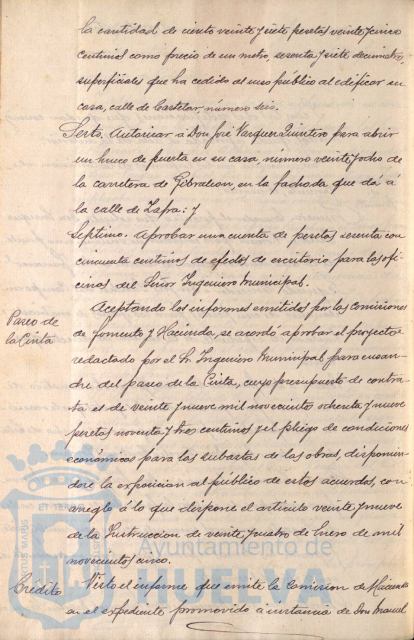 la cantidad de ciento veinte y siete pesetas veinte y cinco
centimos como precio de un metro, sesenta y siete decimetros
superficiales que ha cedido al uso público al edificar su
casa, calle de Castelar, número seis.
Sexto. Autorizar a Don José Vazquez Quintero para abrir
un hueco de puerta en su casa, número veinte y ocho de
la carretera de Gibraleon, en la fachada que dá á
la calle de Zafra: y
Septimo. Aprobar una cuenta de pesetas sesenta con
cincuenta centimos de efectos de escritorio para las ofi-
cinas del Señor Ingeniero Municipal.
Paseo de
la Cinta
Aceptando los informes emitidos por las comisiones
de Fomento y Hacienda, se acordó aprobar el proyecto
redactado por el Sr. Ingeniero Municipal para ensan-
che del paseo de la Cinta, cuyo presupuesto de contra-
ta es de veinte y nueve mil novecientos ochenta y nueve
pesetas noventa y tres centimos y el pliego de condiciones
económicas para las subastas de las obras, disponien-
dose la exposicion al público de estos acuerdos, con
arreglo á lo que dispone el articulo veinte y nueve
de la Instruccion de veinte y cuatro de Enero de mil
novecientos cinco.
Crédito
Visto el informe que emite la Comision de Hacienda
en el expediente promovido a instancia de Don Manuel
Ayuntamiento de
HUELVA